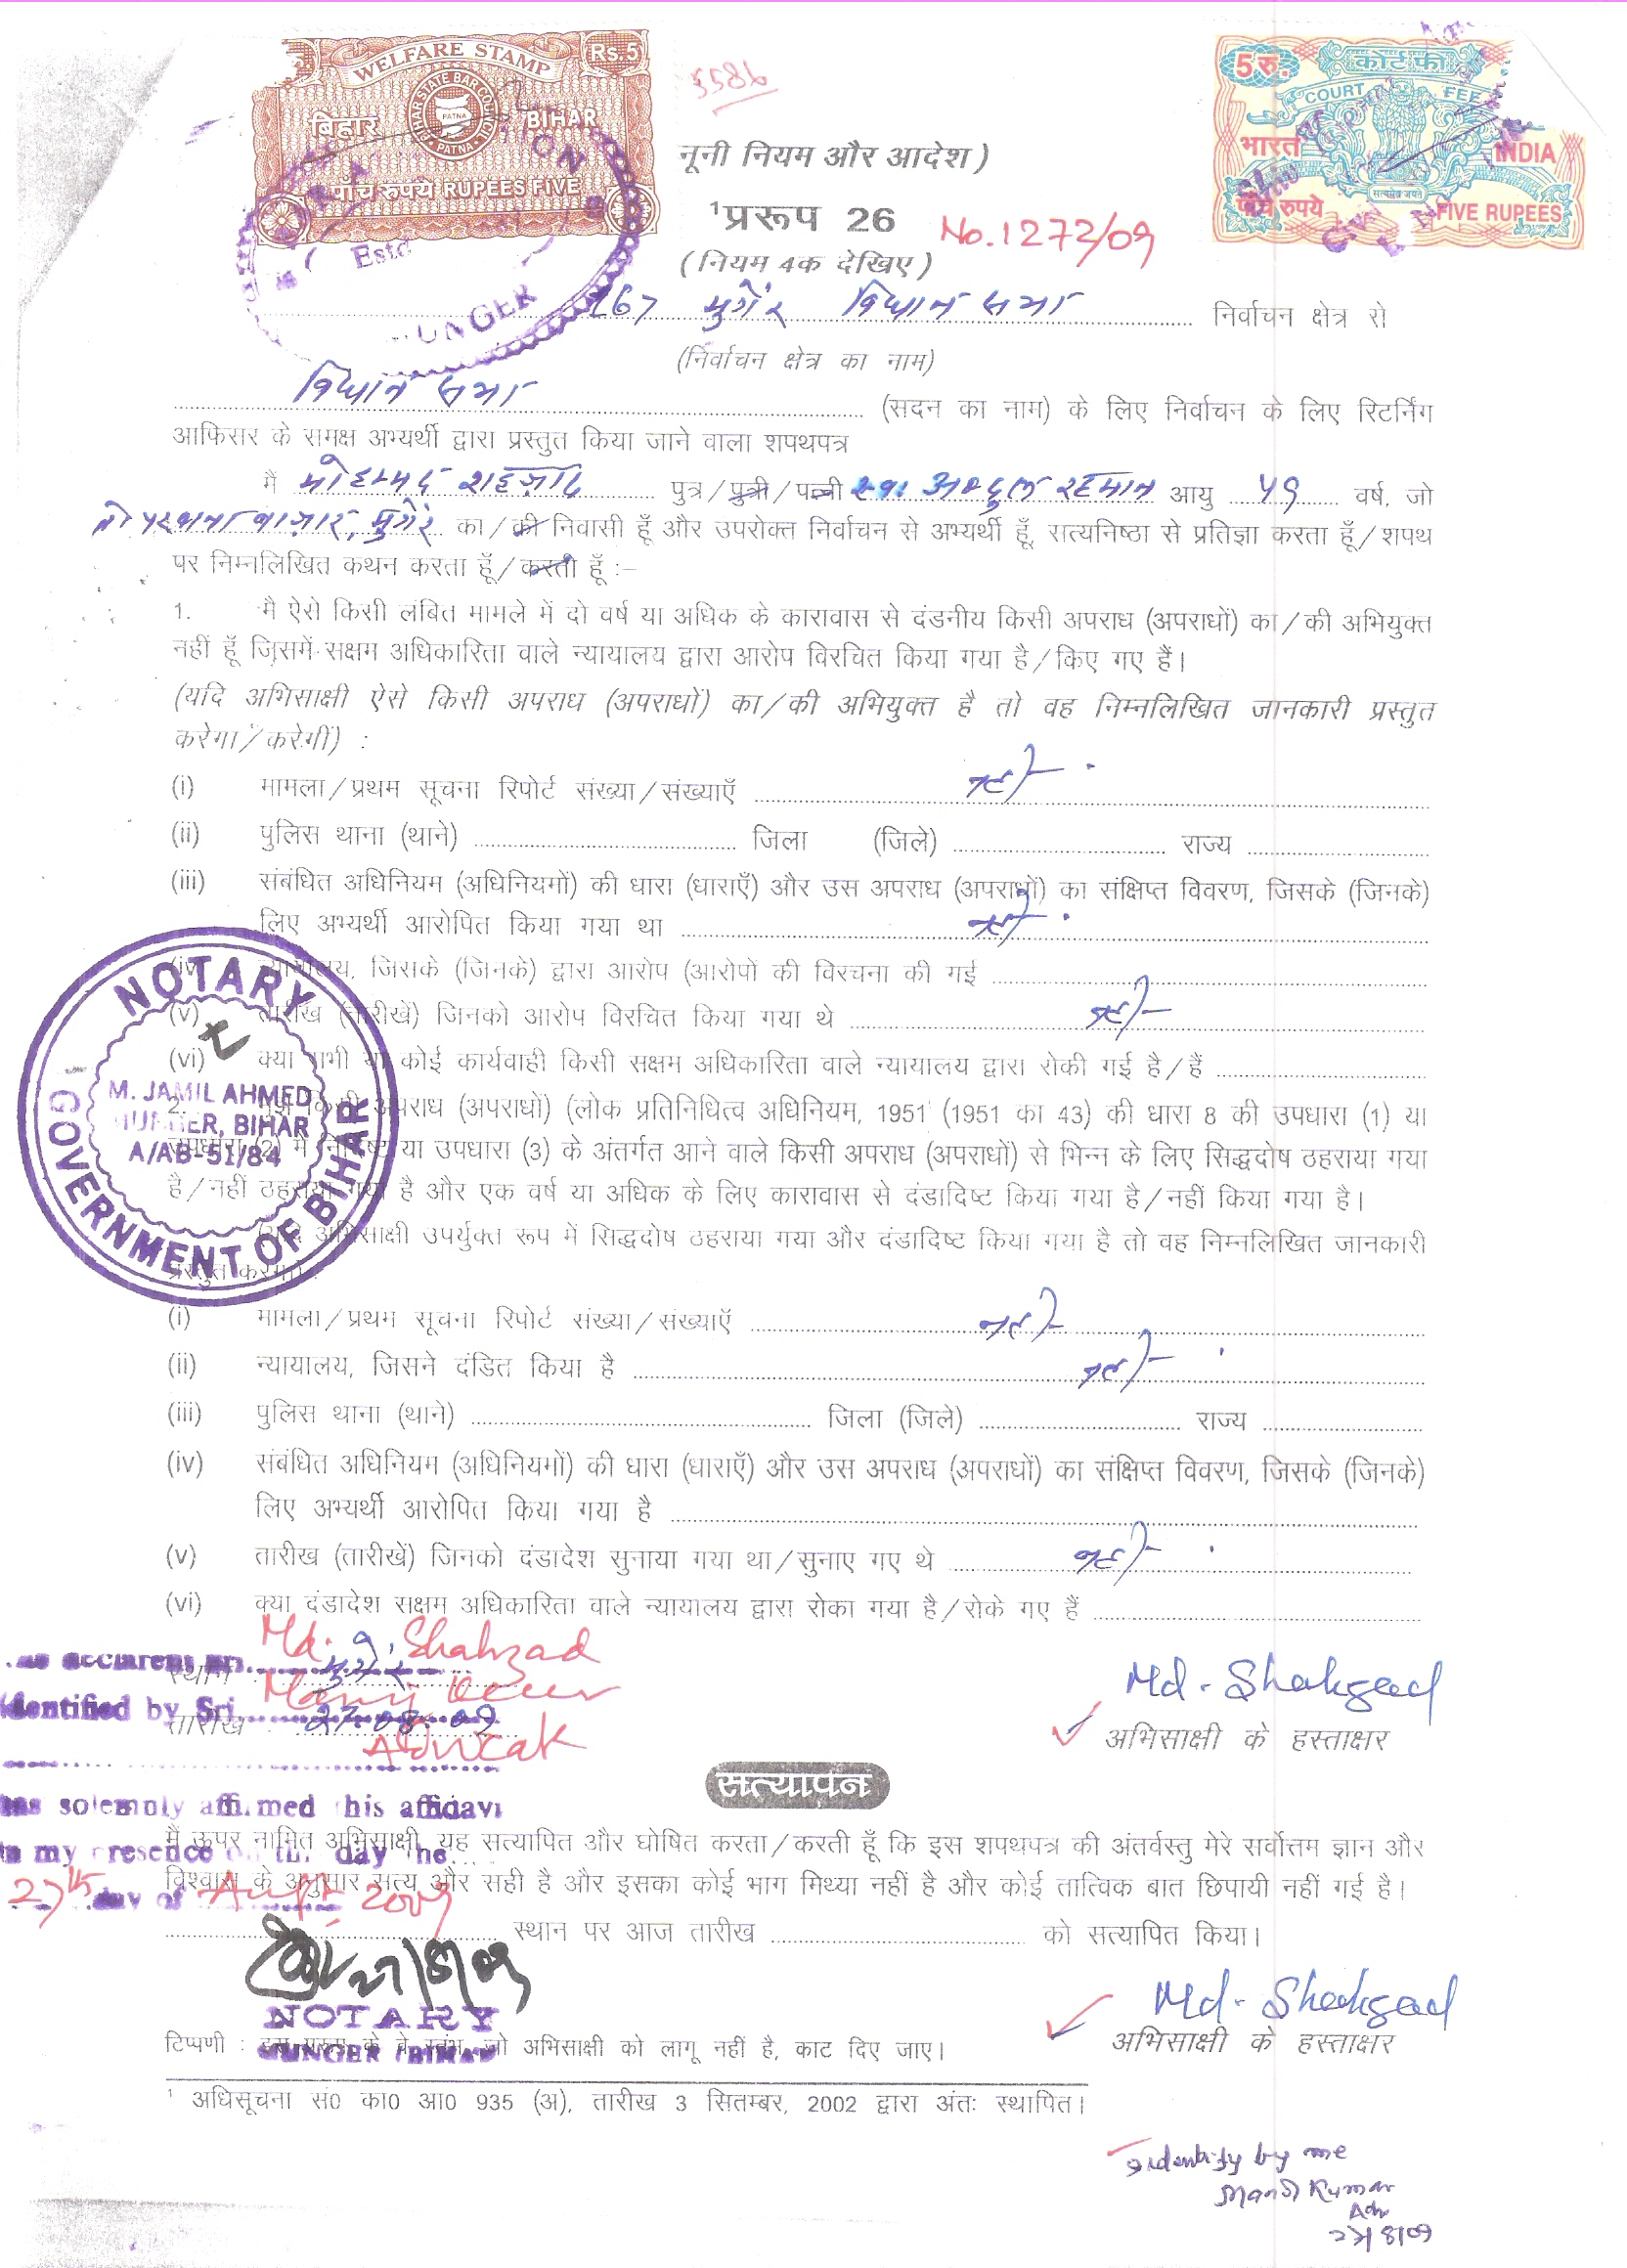 WELFARE STAMP
Rs.5
BIHAR STATE BAR COUNCIL
PATNA
PATNA
बिहार BIHAR
पाँच रुपये RUPEES FIVE
Estd
5586
5 रु. कोर्ट फी
COURT FEE
भारत INDIA
सत्यमेव जयते
पाँच रुपये FIVE RUPEES
नूनी नियम और आदेश)
¹प्ररूप 26
No. 1272/09
(नियम 4क देखिए)
167 मुंगेर विधान सभा निर्वाचन क्षेत्र से
(निर्वाचन क्षेत्र का नाम)
विधान सभा (सदन का नाम) के लिए निर्वाचन के लिए रिटर्निंग
आफिसर के समक्ष अभ्यर्थी द्वारा प्रस्तुत किया जाने वाला शपथपत्र
मैं मोहम्मद शहज़ाद पुत्र/पुत्री/पत्नी स्व० अब्दुल रहमान आयु ५९ वर्ष, जो
बाज़ार, मुंगेर का/की निवासी हूँ और उपरोक्त निर्वाचन से अभ्यर्थी हूँ, सत्यनिष्ठा से प्रतिज्ञा करता हूँ/शपथ
पर निम्नलिखित कथन करता हूँ/करती हूँ :–
1. मैं ऐसे किसी लंबित मामले में दो वर्ष या अधिक के कारावास से दंडनीय किसी अपराध (अपराधों) का/की अभियुक्त
नहीं हूँ जिसमें सक्षम अधिकारिता वाले न्यायालय द्वारा आरोप विरचित किया गया है/किए गए हैं।
(यदि अभिसाक्षी ऐसे किसी अपराध (अपराधों) का/की अभियुक्त है तो वह निम्नलिखित जानकारी प्रस्तुत
करेगा/करेगीं) :
(i) मामला/प्रथम सूचना रिपोर्ट संख्या/संख्याएँ नहीं
(ii) पुलिस थाना (थाने) जिला (जिले) राज्य
(iii) संबंधित अधिनियम (अधिनियमों) की धारा (धाराएँ) और उस अपराध (अपराधों) का संक्षिप्त विवरण, जिसके (जिनके)
लिए अभ्यर्थी आरोपित किया गया था नहीं
(iv) न्यायालय, जिसके (जिनके) द्वारा आरोप (आरोपों की विरचना की गई
(v) तारीख (तारीखें) जिनको आरोप विरचित किया गया थे नहीं
(vi) क्या सभी या कोई कार्यवाही किसी सक्षम अधिकारिता वाले न्यायालय द्वारा रोकी गई है/हैं
NOTARY
M. JAMIL AHMED
MUNGER, BIHAR
A/AB-51/84
GOVERNMENT OF BIHAR
2. मुझे किसी अपराध (अपराधों) (लोक प्रतिनिधित्व अधिनियम, 1951 (1951 का 43) की धारा 8 की उपधारा (1) या
उपधारा (2) में निर्दिष्ट या उपधारा (3) के अंतर्गत आने वाले किसी अपराध (अपराधों) से भिन्न के लिए सिद्धदोष ठहराया गया
है/नहीं ठहराया गया है और एक वर्ष या अधिक के लिए कारावास से दंडादिष्ट किया गया है/नहीं किया गया है।
(यदि अभिसाक्षी उपर्युक्त रूप में सिद्धदोष ठहराया गया और दंडादिष्ट किया गया है तो वह निम्नलिखित जानकारी
प्रस्तुत करेगा) :
(i) मामला/प्रथम सूचना रिपोर्ट संख्या/संख्याएँ नहीं
(ii) न्यायालय, जिसने दंडित किया है नहीं
(iii) पुलिस थाना (थाने) जिला (जिले) राज्य
(iv) संबंधित अधिनियम (अधिनियमों) की धारा (धाराएँ) और उस अपराध (अपराधों) का संक्षिप्त विवरण, जिसके (जिनके)
लिए अभ्यर्थी आरोपित किया गया है
(v) तारीख (तारीखें) जिनको दंडादेश सुनाया गया था/सुनाए गए थे नहीं
(vi) क्या दंडादेश सक्षम अधिकारिता वाले न्यायालय द्वारा रोका गया है/रोके गए हैं
Md. Shahzad
स्थान : मुंगेर
Identified by Sri
तारीख : 27.08.09
Md. Shahzad
अभिसाक्षी के हस्ताक्षर
सत्यापन
has solemnly affirmed this affidavi
in my presence on the day the
27th day of Augt. 2009
मैं ऊपर नामित अभिसाक्षी, यह सत्यापित और घोषित करता/करती हूँ कि इस शपथपत्र की अंतर्वस्तु मेरे सर्वोत्तम ज्ञान और
विश्वास के अनुसार सत्य और सही है और इसका कोई भाग मिथ्या नहीं है और कोई तात्विक बात छिपायी नहीं गई है।
स्थान पर आज तारीख को सत्यापित किया।
NOTARY
MUNGER (BIHAR
Md. Shahzad
अभिसाक्षी के हस्ताक्षर
टिप्पणी : इस प्ररूप के वे स्तंभ, जो अभिसाक्षी को लागू नहीं है, काट दिए जाए।
¹ अधिसूचना सं0 का0 आ0 935 (अ), तारीख 3 सितम्बर, 2002 द्वारा अंतः स्थापित।
Identify by me
Manoj Kumar
Adv
27/8/09